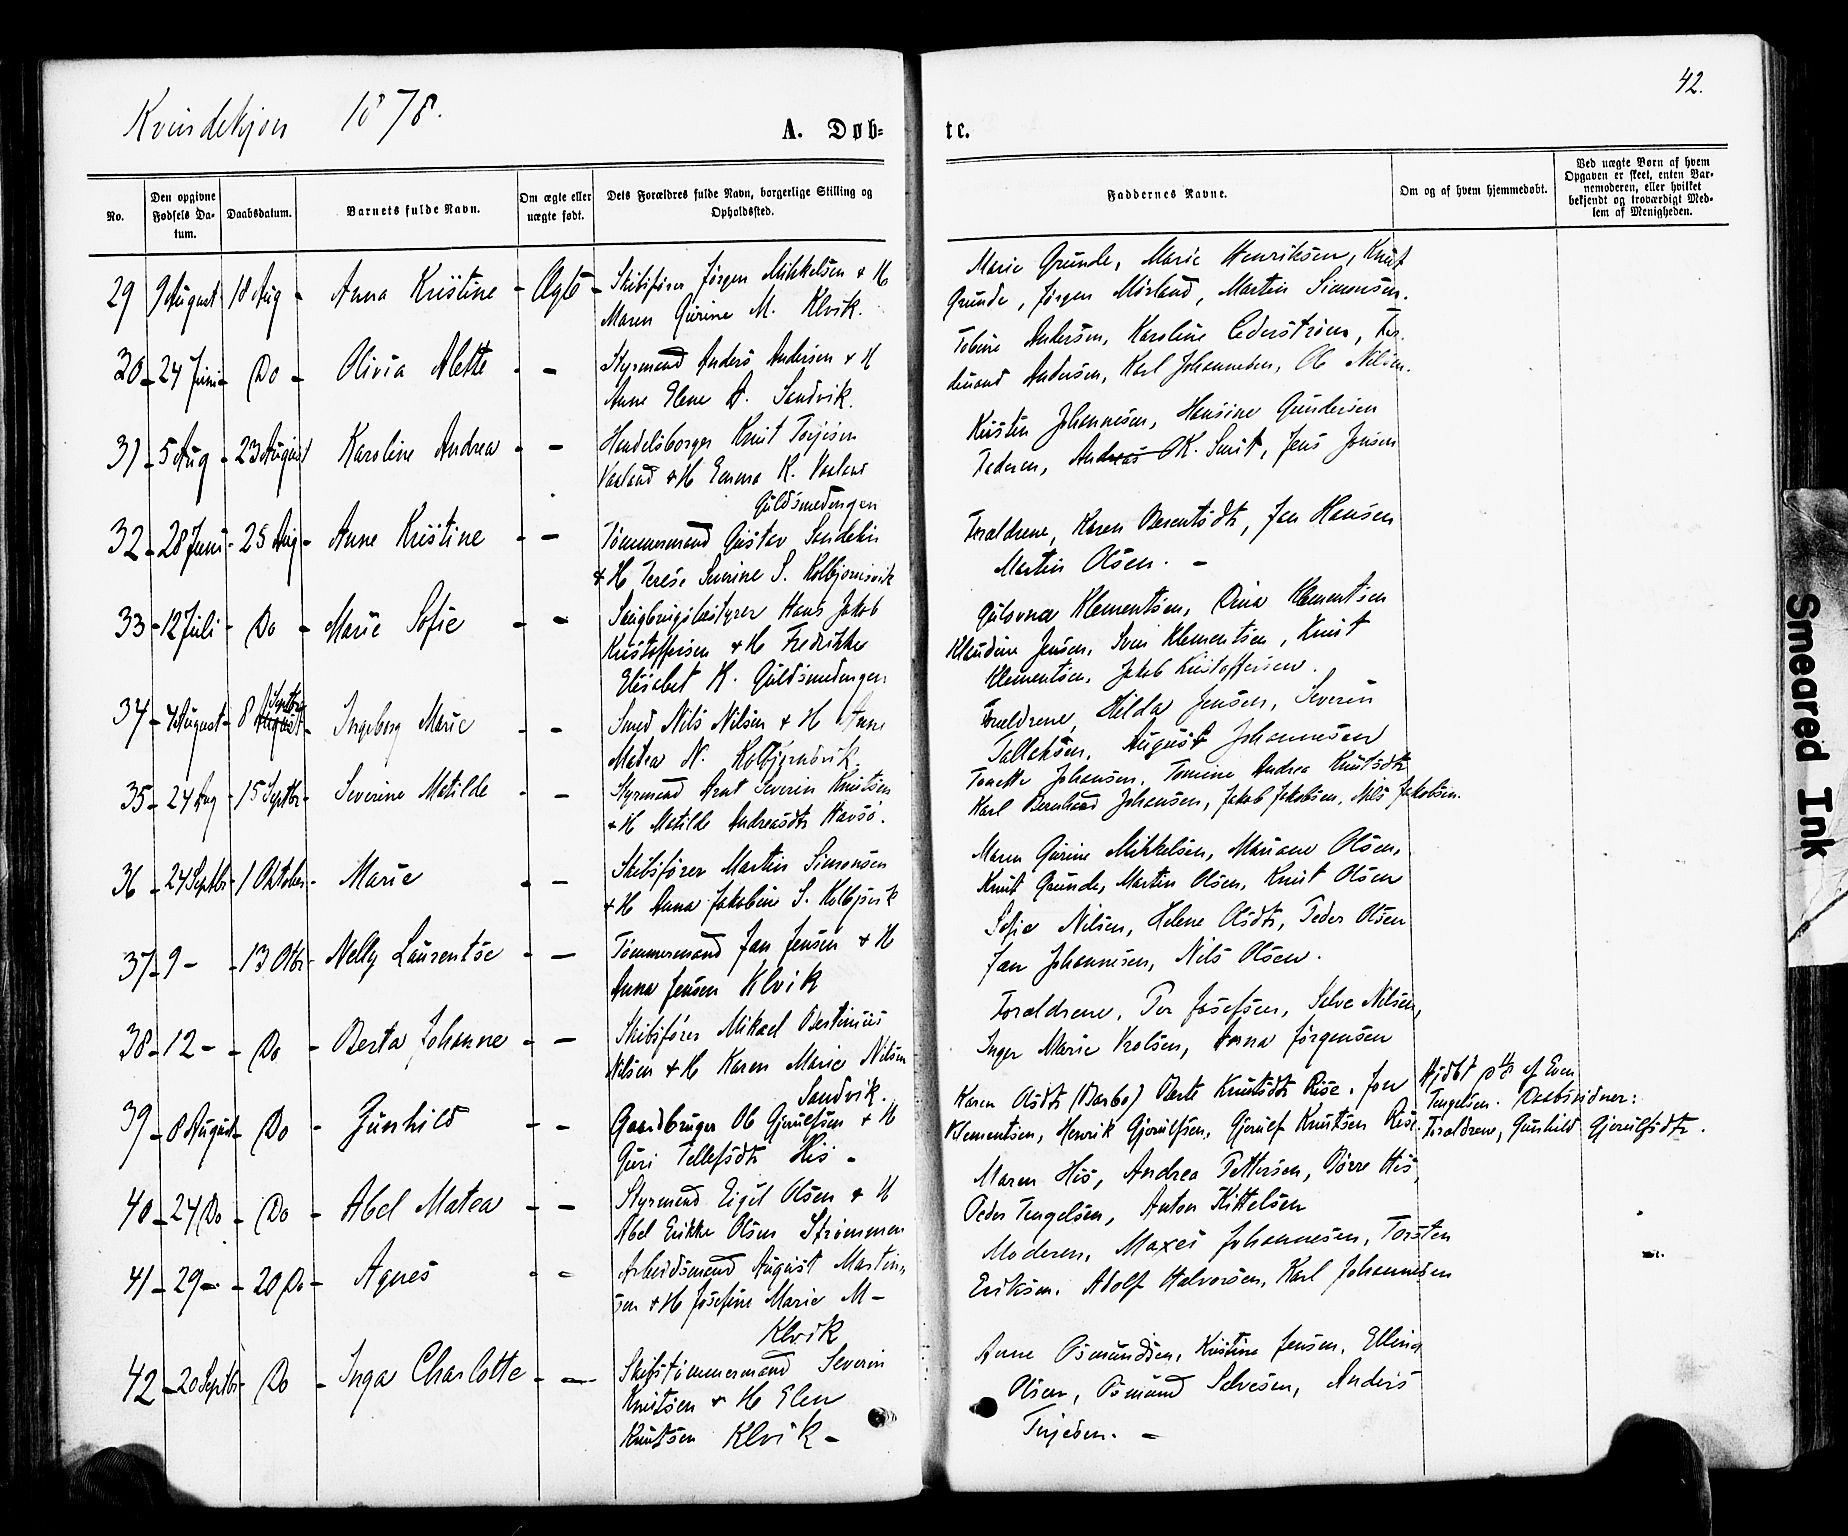 42.
Kvindekjøn 1878.
A. Døb- te.
No.
Den opgivne Fødsels Da-tum.
Daabsdatum.
Barnets fulde Navn.
Om ægte eller uægte født.
Dets Forældres fulde Navn, borgerlige Stilling og Opholdssted.
Faddernes Navne.
Om og af hvem hjemmedøbt.
Ved uægte Børn af hvem Opgaven er skeet, enten Bar-nemoderen, eller hvilket bekjendt og troværdigt Med-lem af Menigheden.
29 9 August 18 Aug - Anna Kristine - Ægte - Skibsfører Jørgen Mikkelsen & H
Maren Gurine M. Klvik.
Marie Grunde, Marie Henriksen, Knut
Grunde, Jørgen Mørland, Martin Simonsen.
30 - 24 Juni - Do - Olivia Alette - - Styrmand Anders Andersen & H
Anne Elene A. Sandvik.
Tobine Andersen, Karoline Cederstrøm, Fer-
dinand Andersen, Karl Johannesen, Ole Nilsen.
31 - 5 Aug - 23 August Karoline Andrea - - Handelsborger Knut Terjesen
Vaaland & H Emma K. Vaaland
Guldsmedengen
Kirsten Johannesen, Hansine Gundersen
Pedersen, Andreas K. Smit, Jens Jensen
32 - 28 Juni - 25 Aug - Anne Kristine - - Tømmermand Gustav Sandelin
& H Terese Severine S. Kolbjørnsvik
Foraldrene, Karen Berentsdtr, Jan Hansen
Martin Olsen. -
33 - 12 Juli - Do - Marie Sofie - - Saugbrugsbestyrer Hans Jakob
Kristoffersen & H Fredrikke
Elisabet K. Guldsmedengen
Gulovna Klementsen, Dina Klementsen
Klaudine Jensen, Sven Klementsen, Knut
Klementsen, Jakob Kristoffersen.
34 - 4 August - 8 August Septbr - Ingeborg Marie - - Smed Nils Nilsen & H Anne
Matea N. Kolbjørnsvik.
Foraldrene, Hilda Jensen, Severin
Tallaksen, August Johannesen
35 - 24 Aug - 15 Septbr - Severine Matilde - - Styrmand Arnt Severin Knutsen
& H Matilde Andreasdtr Havsø.
Tonette Johansen, Tomine Andrea Knutsdtr
Karl Bernhard Johansen, Jakob Jakobsen, Nils Jakobsen.
36 - 24 Septbr - 1 Oktober - Marie - - Skibsfører Martin Simonsen
& H Anna Jakobine S. Kolbjsvik
Maren Gurine Mikkelsen, Mariane Olsen,
Knut Grunde, Martin Olsen, Knut Olsen
37 - 9 - - 13 Otbr - Nelly Laurentse - - Tømmermand Jan Jensen & H
Anna Jensen Klvik
Sofie Nilsen, Helene Olsdtr, Peder Olsen
Jan Johannesen, Nils Olsen.
38 - 12 - - Do - Berta Johanne - - Skibsfører Mikael Bertinius
Nilsen & H Karen Marie Nilsen
Sandvik.
Foraldrene, Per Josefsen, Selve Nilsen,
Inger Marie Kolsen, Anna Jørgensen
39 - 8 August - Do - Gunhild - - Gaardbruger Ole Gjerulfsen & H
Guri Tellefsdtr His -
Karen Olsdtr (Barbo) Berte Knutsdtr Rise, Jon
Klementsen, Henrik Gjerulfsen, Gjerulf Knutsen Rise
Hjdbt af Even
Tengelsen. Daabsvidner:
Foraldrene, Gunhild Gjerulfsdtr.
40 - 24 Do - Do - Abel Matea - - Styrmand Eigil Olsen & H
Abel Erikke Olsen Strømmen
Maren His, Andrea Pettersen, Børre His,
Peder Tengelsen, Anton Kittelsen
41 - 29 - - 20 Do - Agnes - - Arbeidsmand August Martin-
sen & H Josefine Marie M -
Klvik
Moderen, Maxei Johannesen, Torsten
Eriksen, Adolf Halvorsen, Karl Johannesen
42 - 20 Septbr - Do - Inga Charlotte - - Skibstømmermand Severin
Knutsen & H Elen
Knutsen Klvik -
Anne Osmundsen, Kristine Jensen, Elling
Olsen, Osmund Selvesen, Anders
Terjesen. -
Smeared Ink